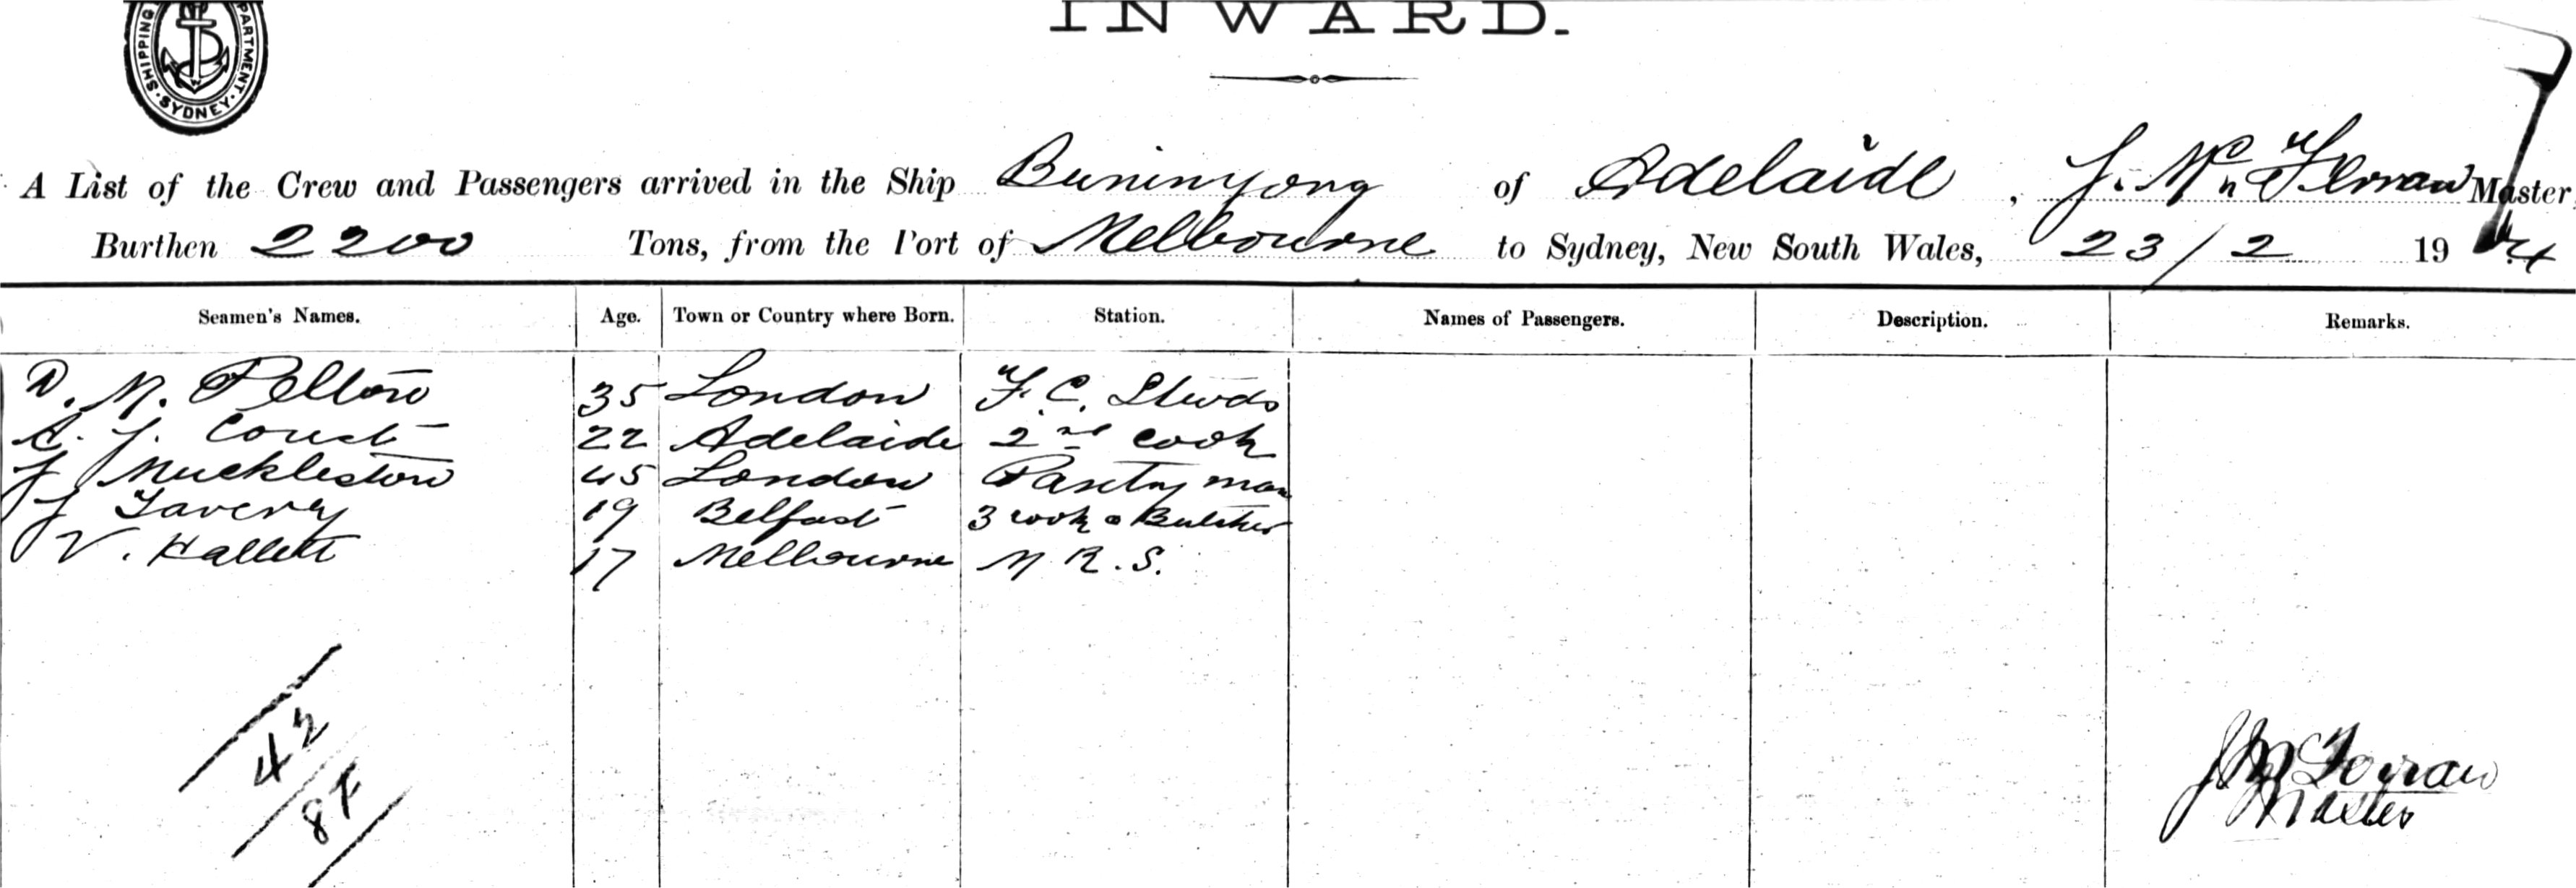 INWARD.
SHIPPING DEPARTMENT. SYDNEY.
A List of the Crew and Passengers arrived in the Ship Buninyong of Adelaide, J. Mc Master,
Burthen 2200 Tons, from the Port of Melbourne to Sydney, New South Wales, 23/2 19 4
Seamen's Names. Age. Town or Country where Born. Station. Names of Passengers. Description. Remarks.
D. M. Pelton 35 London F. C. Stwds
22 Adelaide 2nd Cook
J Muckleston 45 London Pantry man
J 19 Belfast 3 cook & Butcher
V. Hallett 17 Melbourne M. R. S.
42
84
Master